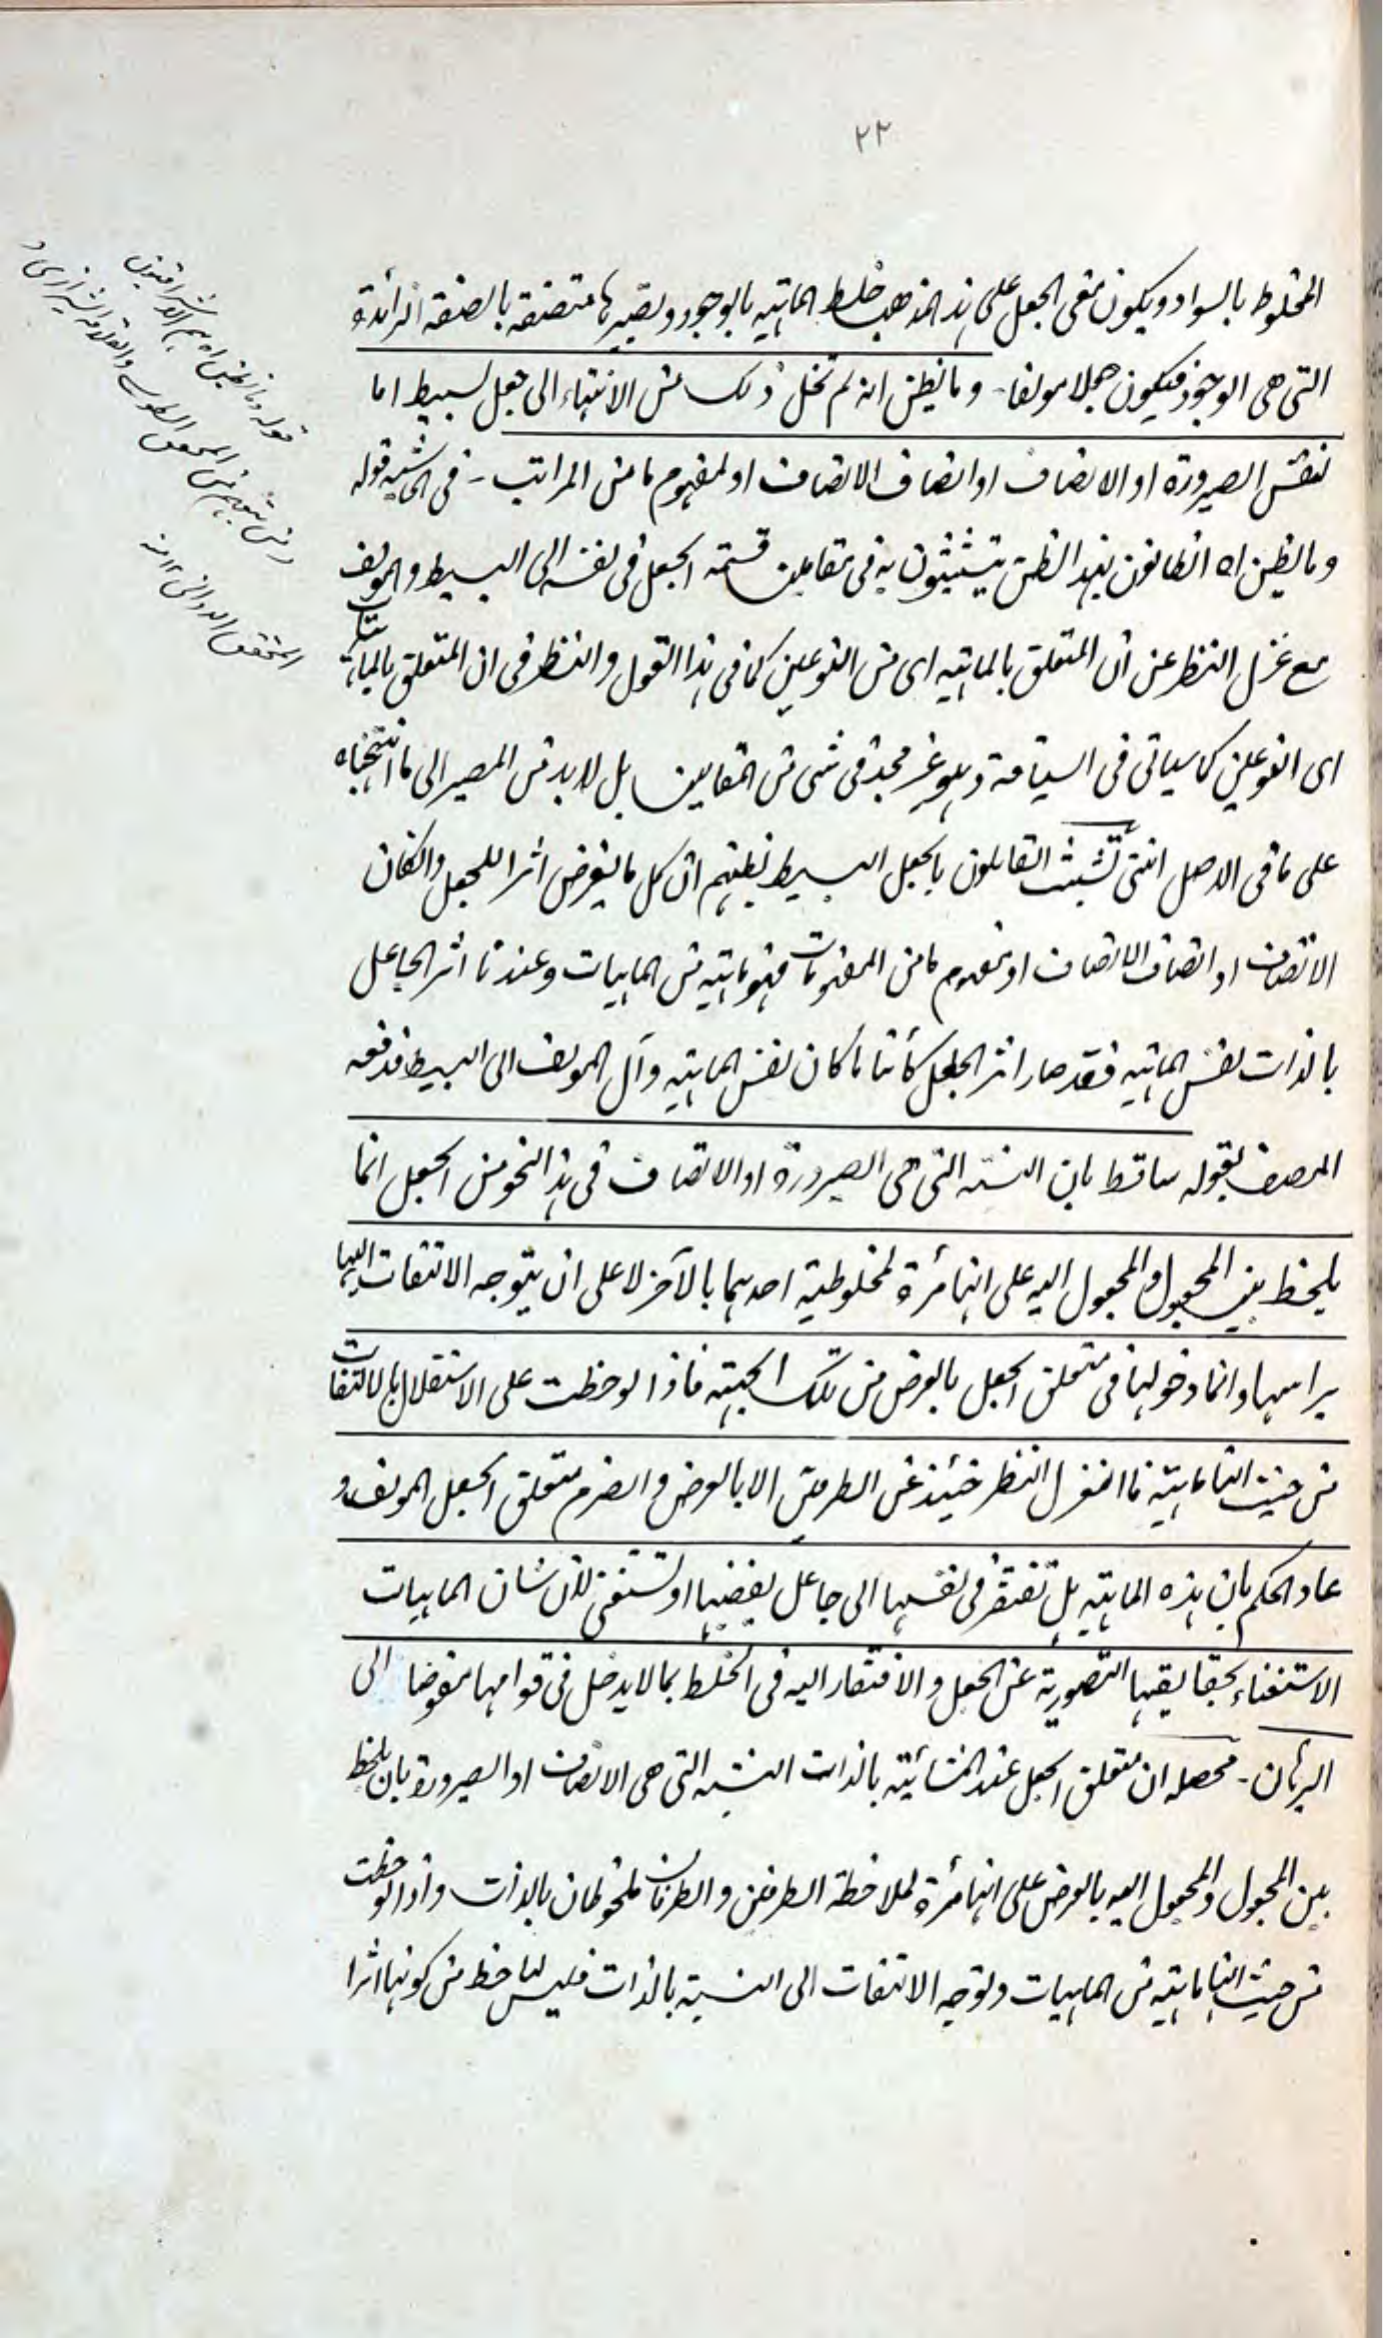 ٢٢
المخلوط بالسواد ويكون معنى الجعل على هذا المذهب خلط الماهية بالوجود وتصييرها متصفة بالصفة الزائدة
التى هى الوجود فيكون جعلا مولفا - وما يظن انه لم تخل ذلك من الانتهاء الى جعل بسيط اما
لنفس الصيرورة او الاتصاف او اتصاف الاتصاف او لمفهوم ما من المراتب - فى الحاشية قوله
وما يظن اه الظانون بهذا الظن يتشبثون به فى مقامين قسمة الجعل فى نفسه الى البسيط والمولف
مع عزل النظر عن ان المتعلق بالماهية اى من النوعين كما فى هذا القول والنظر فى ان المتعلق بالماهية
اى النوعين كما سياتى فى السياقة وهو غير مجد فى شى من المقامين بل لابد من المصير الى ما انتهجناه
على ما فى الاصل انتهى تشبث القايلون بالجعل البسيط بظنهم ان كل ما يفرض اثرا للجعل وان كان
الاتصاف او اتصاف الاتصاف او مفهوم ما من المفهومات فهو ماهية من الماهيات وعندنا اثر الجاعل
بالذات نفس الماهية فقد صار اثر الجعل كائنا ما كان نفس الماهية وآل المولف الى البسيط فدفعه
المصنف بقوله ساقط بان النسبة التى هى الصيرورة او الاتصاف فى هذا النحو من الجعل انما
يلحظ بين المجعول والمجعول اليه على انها مرآة لمخلوطية احدهما بالآخر لا على ان يتوجه الالتفات اليها
براسها وانما دخولها فى متعلق الجعل بالعرض من تلك الجهة فاذا لوحظت على الاستقلال بالالتفات
من حيث انها ماهية ما انعزل النظر حينئذ عن الطرفين الا بالعرض وانصرم متعلق الجعل المولف و
عاد الحكم بان هذه الماهية هل تفتقر فى نفسها الى جاعل يفيضها او تستغنى لان شان الماهيات
الاستغناء بحقايقها التصورية عن الجعل والافتقار اليه فى الخلط بما لا يدخل فى قوامها مفوضا الى
البرهان - محصله ان متعلق الجعل عند المشائية بالذات النسبة التى هى الاتصاف او الصيرورة بان يلحظ
بين المجعول والمجعول اليه بالعرض على انها مرآة لملاحظة الطرفين والطرفان ملحوظان بالذات واذا لوحظت
من حيث انها ماهية من الماهيات وتوجه الالتفات الى النسبة بالذات فليس لها حظ من كونها اثرا
قوله وما يظن اه هم الاشراقيون
ومن تبعهم من المحقق الطوسى والعلامة الشيرازى و
المحقق الدوانى ١٢ منه